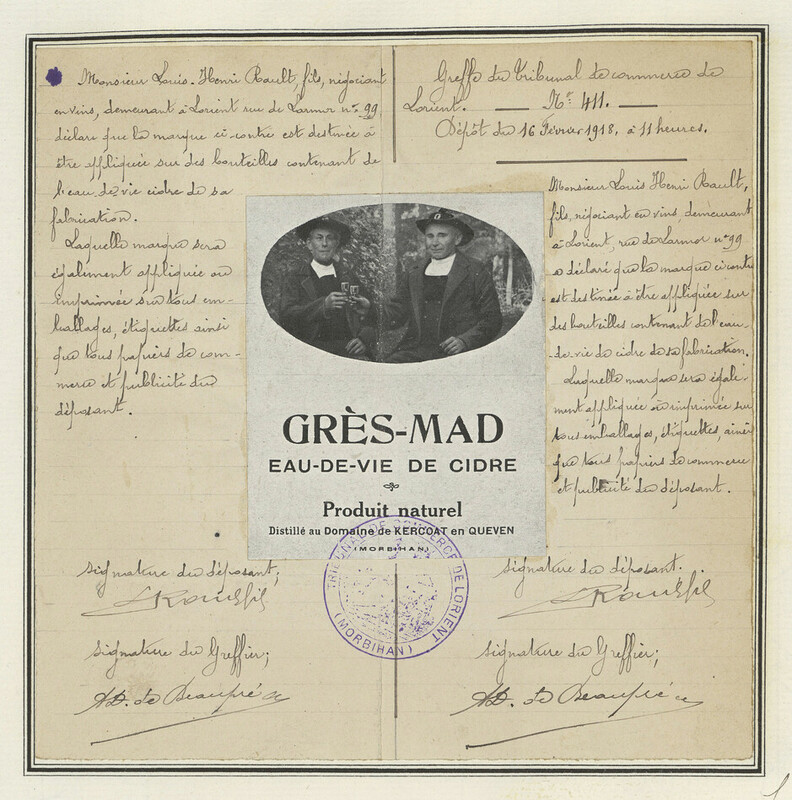 Monsieur Louis-Henri Rault, fils, négociant
en vins, demeurant à Lorient rue de Larmor nº 99
déclare que la marque ci-contre est destinée à
être appliquée sur des bouteilles contenant de
l'eau de vie cidre de sa
fabrication.
Laquelle marque sera
également appliquée ou
imprimée sur tous em-
ballages, étiquettes ainsi
que tous papiers de com-
merce et publicité du
déposant.
Signature du déposant;
Signature du Greffier;
AD. de Beaupré
GRÈS-MAD
EAU-DE-VIE DE CIDRE
Produit naturel
Distillé au Domaine de KERCOAT en QUEVEN
(MORBIHAN)
TRIBUNAL DE COMMERCE DE LORIENT
(MORBIHAN)
Greffe du Tribunal de commerce de
Lorient. — Nº 411. —
Dépôt du 16 Février 1918, à 11 heures.
Monsieur Louis Henri Rault,
fils, négociant en vins, demeurant
à Lorient, rue de Larmor nº 99
a déclaré que la marque ci contre
est destinée à être appliquée sur
des bouteilles contenant de l'eau-
de-vie de cidre de sa fabrication.
Laquelle marque sera égale-
ment appliquée ou imprimée sur
tous emballages, étiquettes, ainsi
que tous papiers de commerce
et publicité du déposant.
Signature du déposant.
Signature du Greffier;
AD. de Beaupré